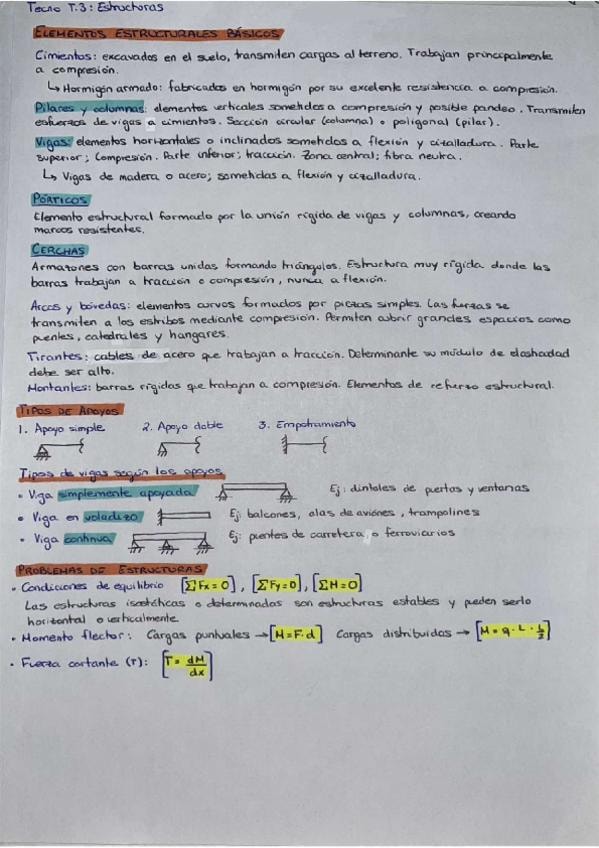 Tecno T.3: Estructuras
ELEMENTOS ESTRUCTURALES BÁSICOS
Cimientos: excavados en el suelo, transmiten cargas al terreno. Trabajan principalmente
a compresión.
↳ Hormigón armado: fabricados en hormigón por su excelente resistencia a compresión.
Pilares y columnas: elementos verticales sometidos a compresión y posible pandeo. Transmiten
esfuerzos de vigas a cimientos. Sección circular (columna) o poligonal (pilar).
Vigas: elementos horizontales o inclinados sometidos a flexión y cizalladura. Parte
superior; compresión. Parte inferior; tracción. Zona central; fibra neutra.
↳ Vigas de madera o acero; sometidas a flexión y cizalladura.
PÓRTICOS
Elemento estructural formado por la unión rígida de vigas y columnas, creando
marcos resistentes.
CERCHAS
Armazones con barras unidas formando triángulos. Estructura muy rígida donde las
barras trabajan a tracción o compresión, nunca a flexión.
Arcos y bóvedas: elementos curvos formados por piezas simples. Las fuerzas se
transmiten a los estribos mediante compresión. Permiten cubrir grandes espacios como
puentes, catedrales y hangares.
Tirantes: cables de acero que trabajan a tracción. Determinante su módulo de elasticidad
debe ser alto.
Montantes: barras rígidas que trabajan a compresión. Elementos de refuerzo estructural.
TIPOS DE APOYOS
1. Apoyo simple 2. Apoyo doble 3. Empotramiento
Tipos de vigas según los apoyos
• Viga simplemente apoyada Ej: dinteles de puertas y ventanas
• Viga en voladizo Ej: balcones, alas de aviones, trampolines
• Viga continua Ej: puentes de carretera, o ferroviarios
PROBLEMAS DE ESTRUCTURAS
• Condiciones de equilibrio [ΣFx=0], [ΣFy=0], [ΣM=0]
Las estructuras isostáticas o determinadas son estructuras estables y pueden serlo
horizontal o verticalmente.
• Momento flector: Cargas puntuales → [M=F·d] Cargas distribuidas → [M=q·L·L/2]
• Fuerza cortante (T): [T=dM/dx]